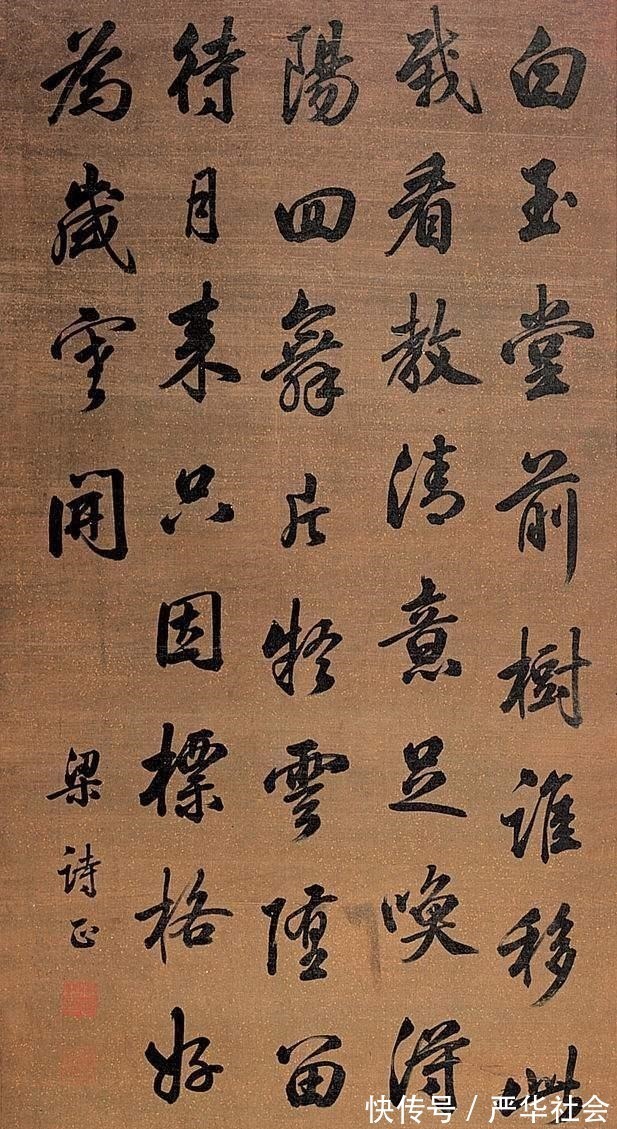 白玉堂前樹誰移此
栽看教清意足喚得
陽回舞片疑雲墮留
待月來只因標格好
為歲寒開
梁詩正
快传号 / 严华社会